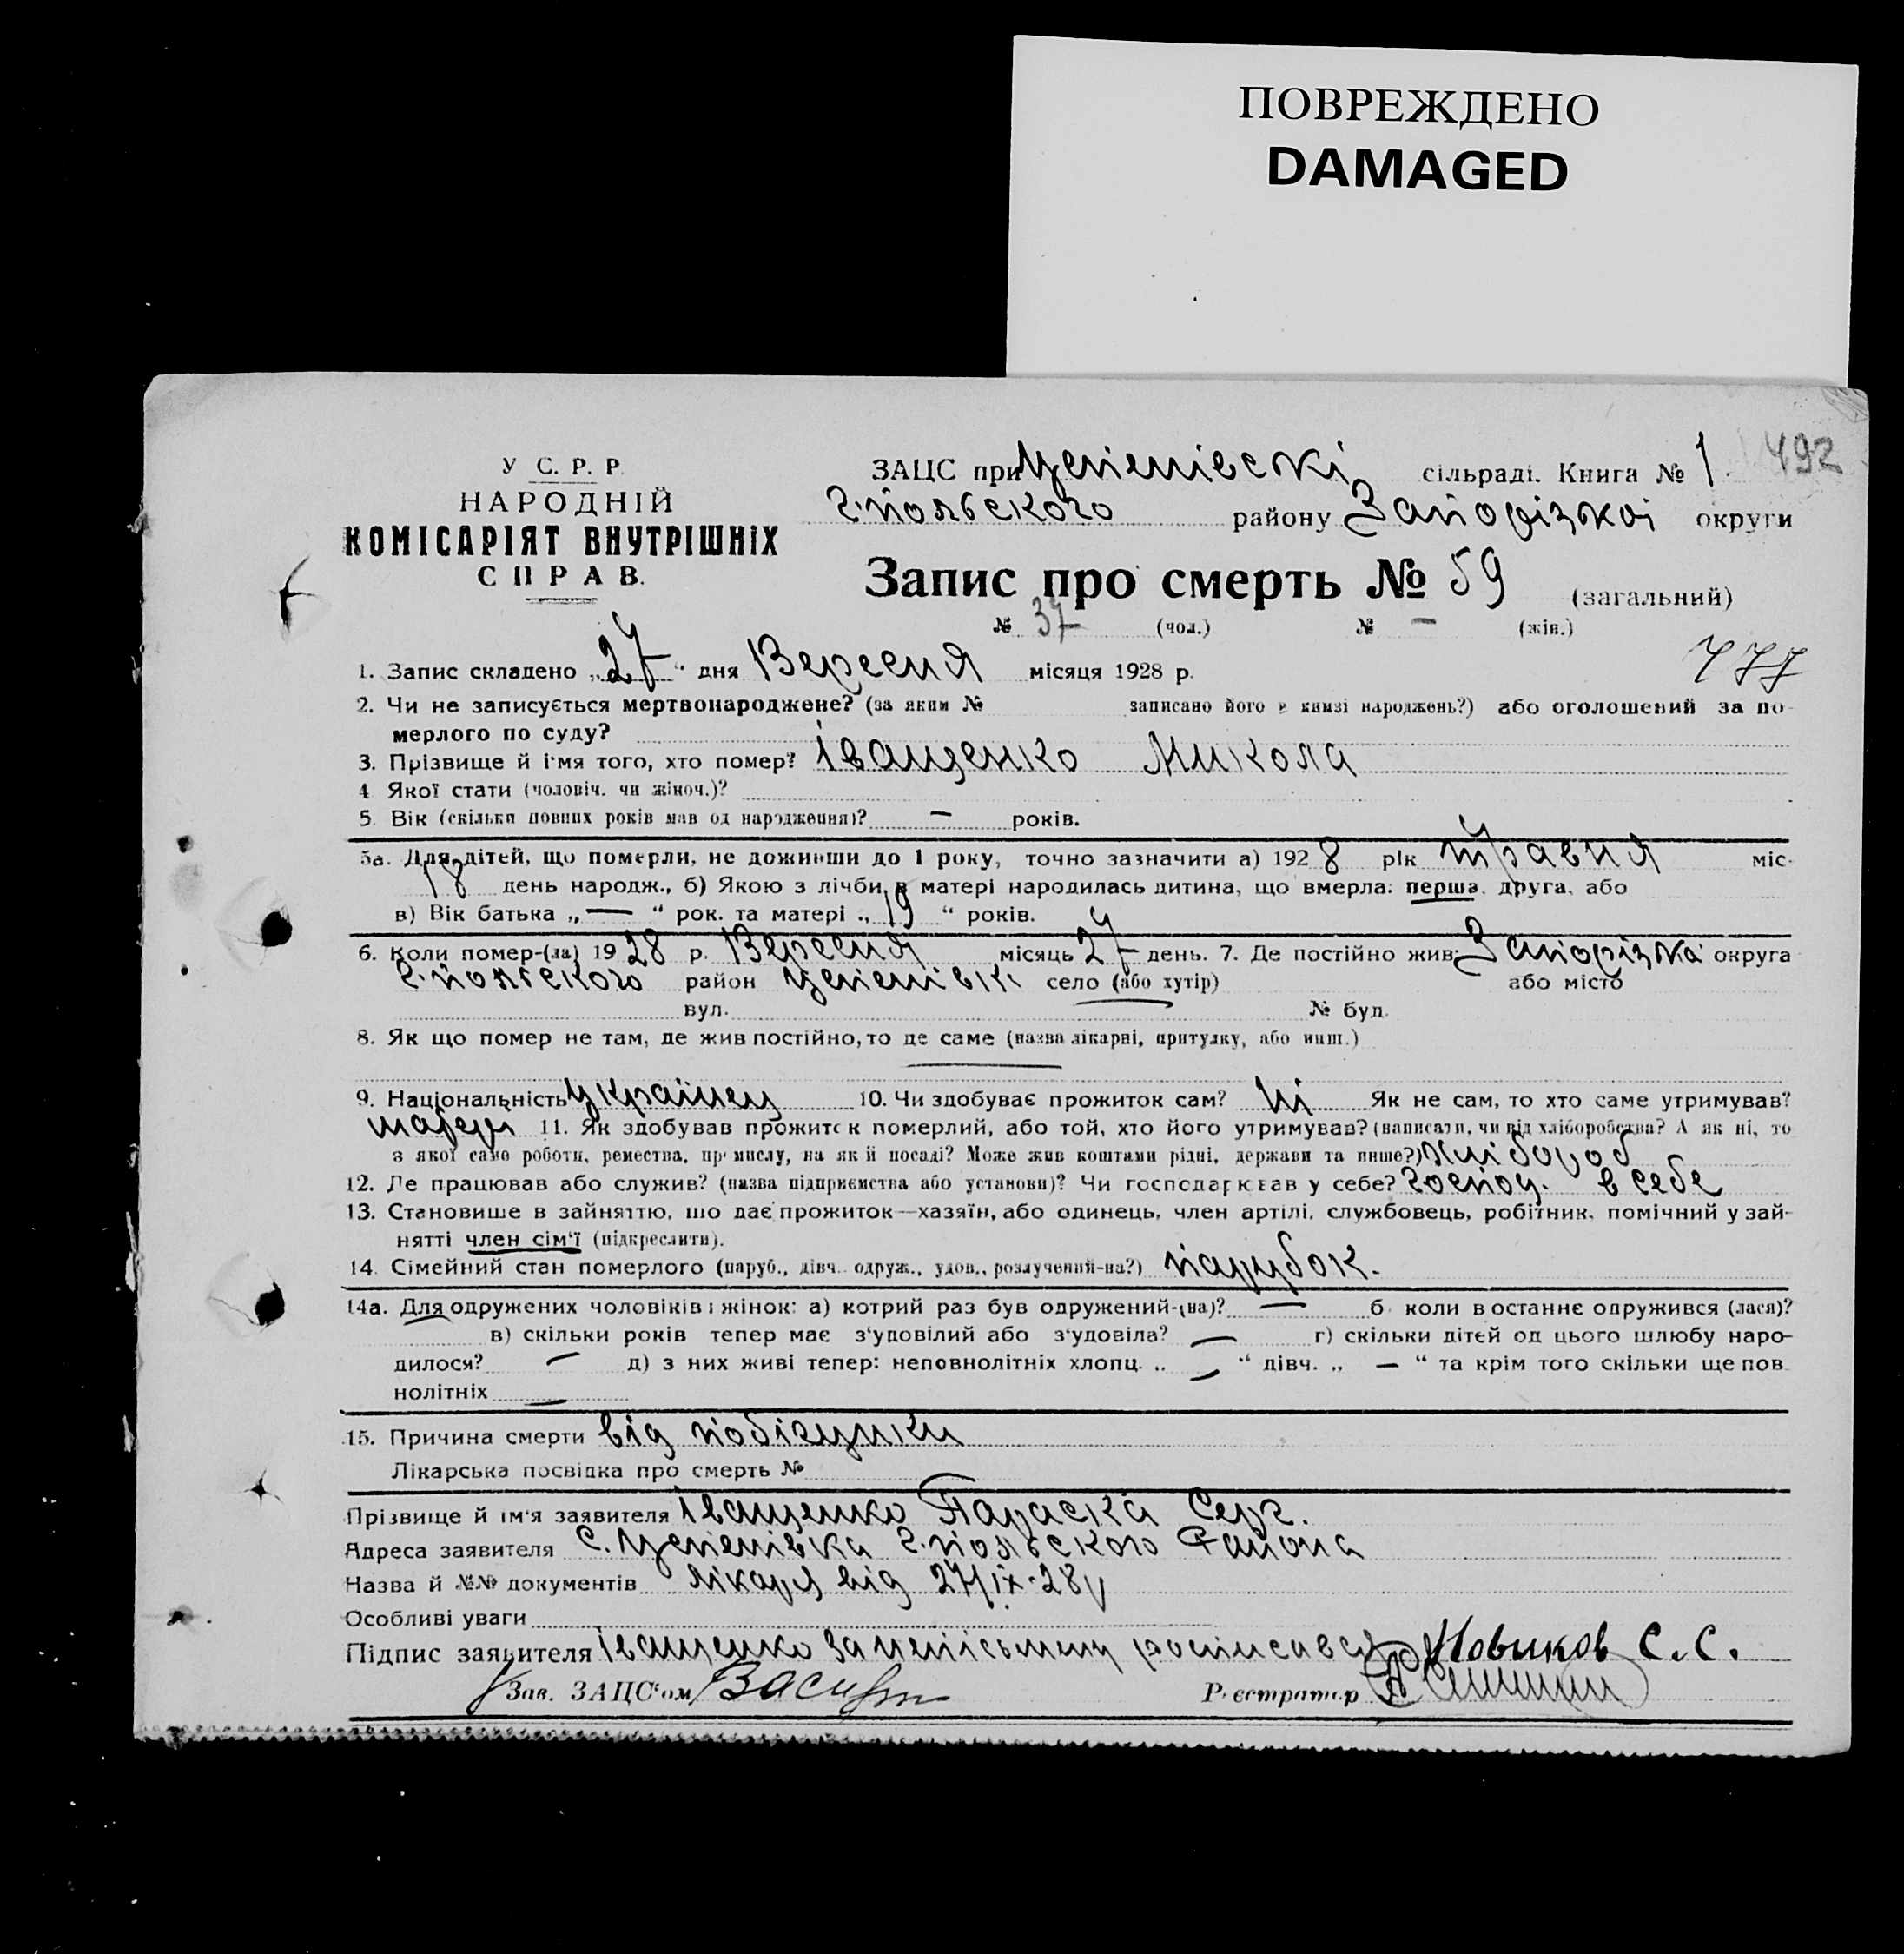 ПОВРЕЖДЕНО
DAMAGED
У С. Р. Р.
НАРОДНІЙ
КОМІСАРІЯТ ВНУТРІШНІХ
СПРАВ.
ЗАЦС при сільраді. Книга № 1. 492
г.польского району Запорізкої округи
Запис про смерть № 59 (загальний)
№ 37 (чол.) № — (жін.)
1. Запис складено „27“ дня Вересня місяця 1928 р. 777
2. Чи не записується мертвонароджене? (за яким № записано його в книзі народжень?) або оголошений за по-
мерлого по суду?
3. Прізвище й ім'я того, хто помер? Іващенко Микола
4 Якої стати (чоловіч. чи жіноч.)?
5. Вік (скільки повних років мав од народження)? — років.
5а. Для дітей, що померли, не доживши до 1 року, точно зазначити а) 1928 рік травня міс-
18 день народж., б) Якою з лічби в матері народилась дитина, що вмерла: перша, друга, або
в) Вік батька „—“ рок. та матері „19“ років.
6. Коли помер-(ла) 1928 р. Вересня місяць 27 день. 7. Де постійно жив: Запорізка округа
г.польского район село (або хутір) або місто
вул. № буд.
8. Як що помер не там, де жив постійно, то де саме (назва лікарні, притулку, або инш.)
—
9. Національність українец 10. Чи здобуває прожиток сам? ні Як не сам, то хто саме утримував?
матери 11. Як здобував прожиток померлий, або той, хто його утримував? (написати, чи від хліборобства? А як ні, то
з якої саме роботи, ремества, промислу, на якій посаді? Може жив коштами рідні, держави та инше?) хлібороб
12. Де працював або служив? (назва підприємства або установи)? Чи господаркував у себе? господ. в себе
13. Становище в зайняттю, що дає прожиток—хазяїн, або одинець, член артілі, службовець, робітник, помічний у зай-
нятті член сім'ї (підкреслити).
14. Сімейний стан померлого (паруб., дівч. одруж., удов., розлучений-на?) парубок.
14а. Для одружених чоловіків і жінок: а) котрий раз був одружений-(на)? — б. коли в останнє одружився (лася)?
в) скільки років тепер має з'удовілий або з'удовіла? — г) скільки дітей од цього шлюбу наро-
дилося? — д) з них живі тепер: неповнолітніх хлопц. „ — “ дівч. „ — “ та крім того скільки ще пов-
нолітніх —
15. Причина смерти від
Лікарська посвідка про смерть №
Прізвище й ім'я заявителя Іващенко Параска Серг.
Адреса заявителя с. г.польского Района
Назва й №№ документів лікаря від 27/IX-28р
Особливі уваги
Підпис заявителя Іващенко Новиков С.С.
Зав. ЗАЦС'ом
Реєстратор